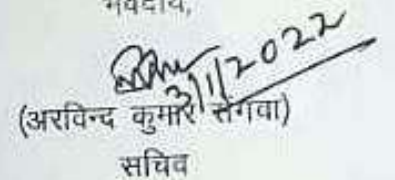 भवदीय,
3/1/2022
(अरविन्द कुमार सेंगवा)
सचिव